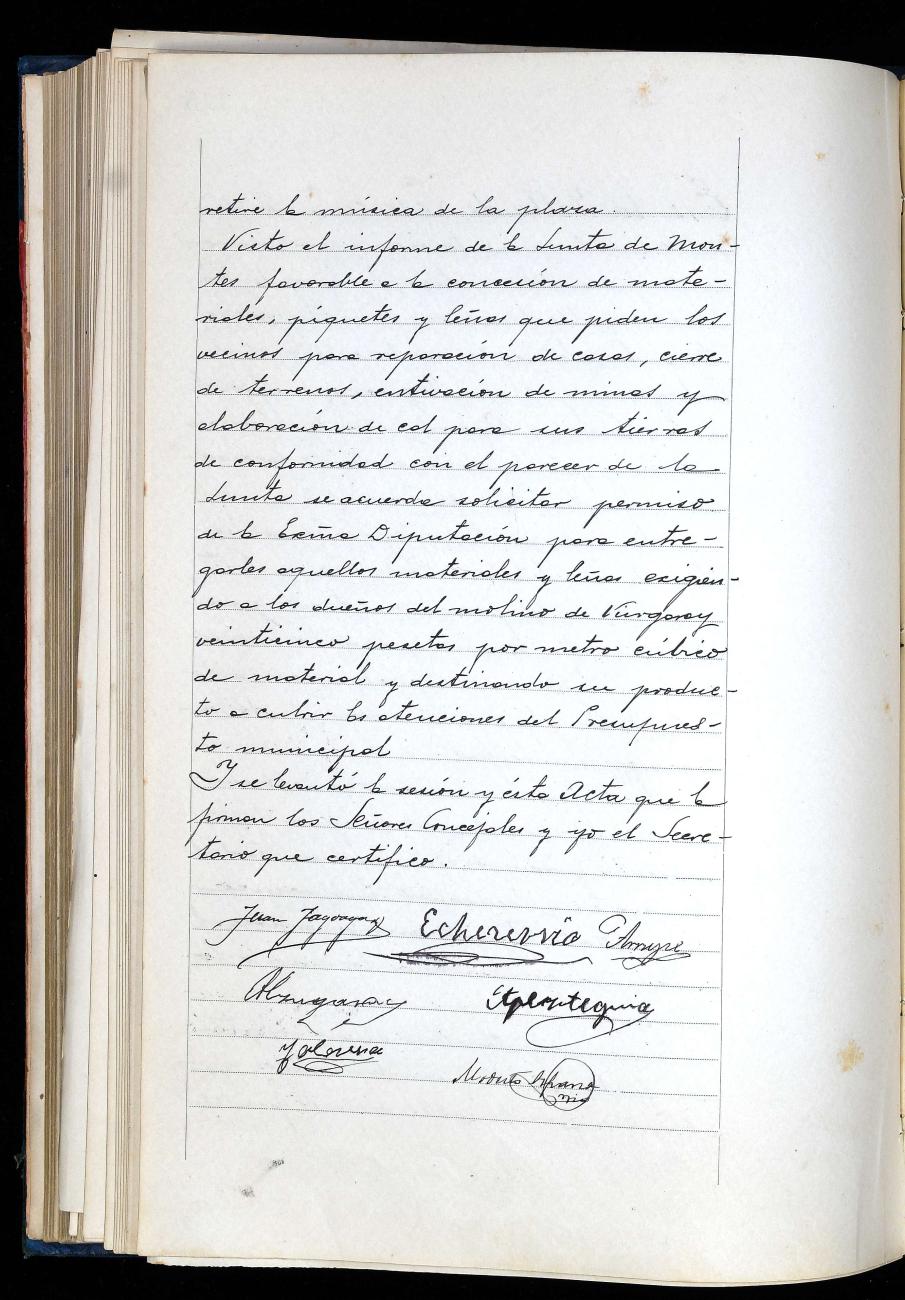 retire la música de la plaza.
Visto el informe de la Junta de Mon-
tes favorable a la concesión de mate-
riales, piquetes y leñas que piden los
vecinos para reparación de casas, cierre
de terrenos, entivación de minas y
elaboración de cal para sus tierras
de conformidad con el parecer de la
Junta se acuerda solicitar permiso
de la Exma Diputación para entre-
garles aquellos materiales y leñas exigien-
do a los dueños del molino de Viurgaray
veinticinco pesetas por metro cúbico
de material y destinando su produc-
to a cubrir las atenciones del Presupues-
to municipal
Y se levantó la sesión y ésta Acta que la
firman los Señores Concejales y yo el Secre-
tario que certifico.
Juan Echeverría
Alzugaray Aperteguia